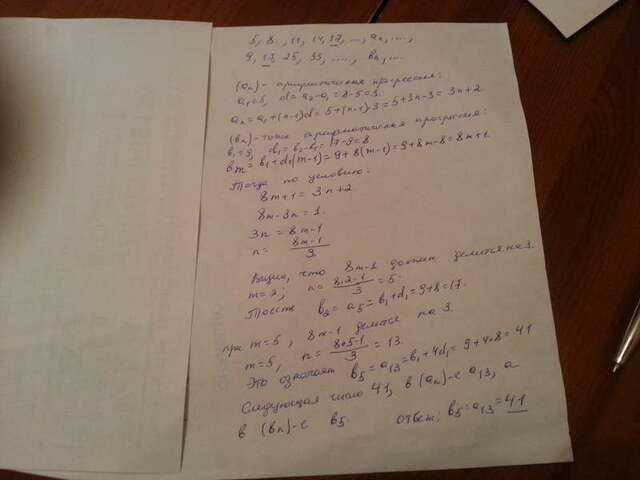 5, 8, 11, 14, 17, ..., aₙ, ...,
9, 17, 25, 33, ....., bₙ, ...
(aₙ) - арифметическая прогрессия:
a₁=5, d=a₂-a₁=8-5=3.
aₙ=a₁+(n-1)d=5+(n-1)·3=5+3n-3=3n+2
(bₙ)-тоже арифметическая прогрессия:
b₁=9, d₁=b₂-b₁=17-9=8
bm=b₁+d₁(m-1)=9+8(m-1)=9+8m-8=8m+1.
Тогда по условию:
8m+1=3n+2.
8m-3n=1.
3n=8m-1
n= 8m-1/3
Видим, что 8m-1 должен делится на 3.
m=2; n= 8·2-1/3 =5.
То есть b₂=a₅=b₁+d₁=9+8=17.
при m=5, 8m-1 делится на 3
m=5, n= 8·5-1/3 =13.
Это означает b₅=a₁₃=b₁+4d₁=9+4·8=41
Следующая число 41, в (aₙ)-е a₁₃, а
в (bₙ)-е b₅. ответ: b₅=a₁₃=41